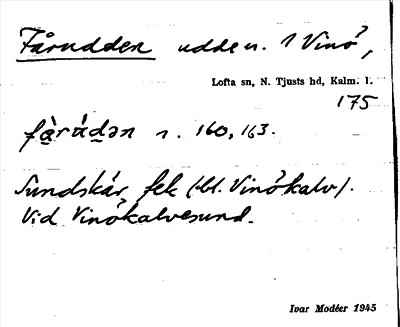 Fårudden udden. 1 Vinö,
Lofta sn, N. Tjusts hd, Kalm. l.
175
fàrùdən n. 160, 163.
Sundskär fek (bl. Vinökalv).
Vid Vinökalvesund.
Ivar Modéer 1945